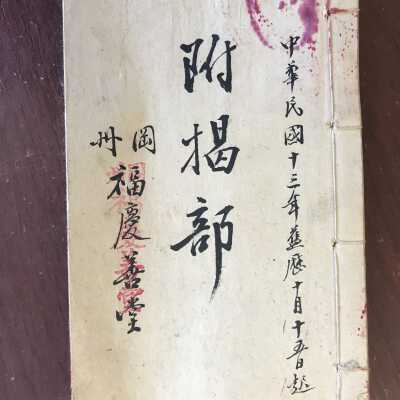 中華民國十三年舊歷十月十五日起
附揭部
岡州
福慶善堂